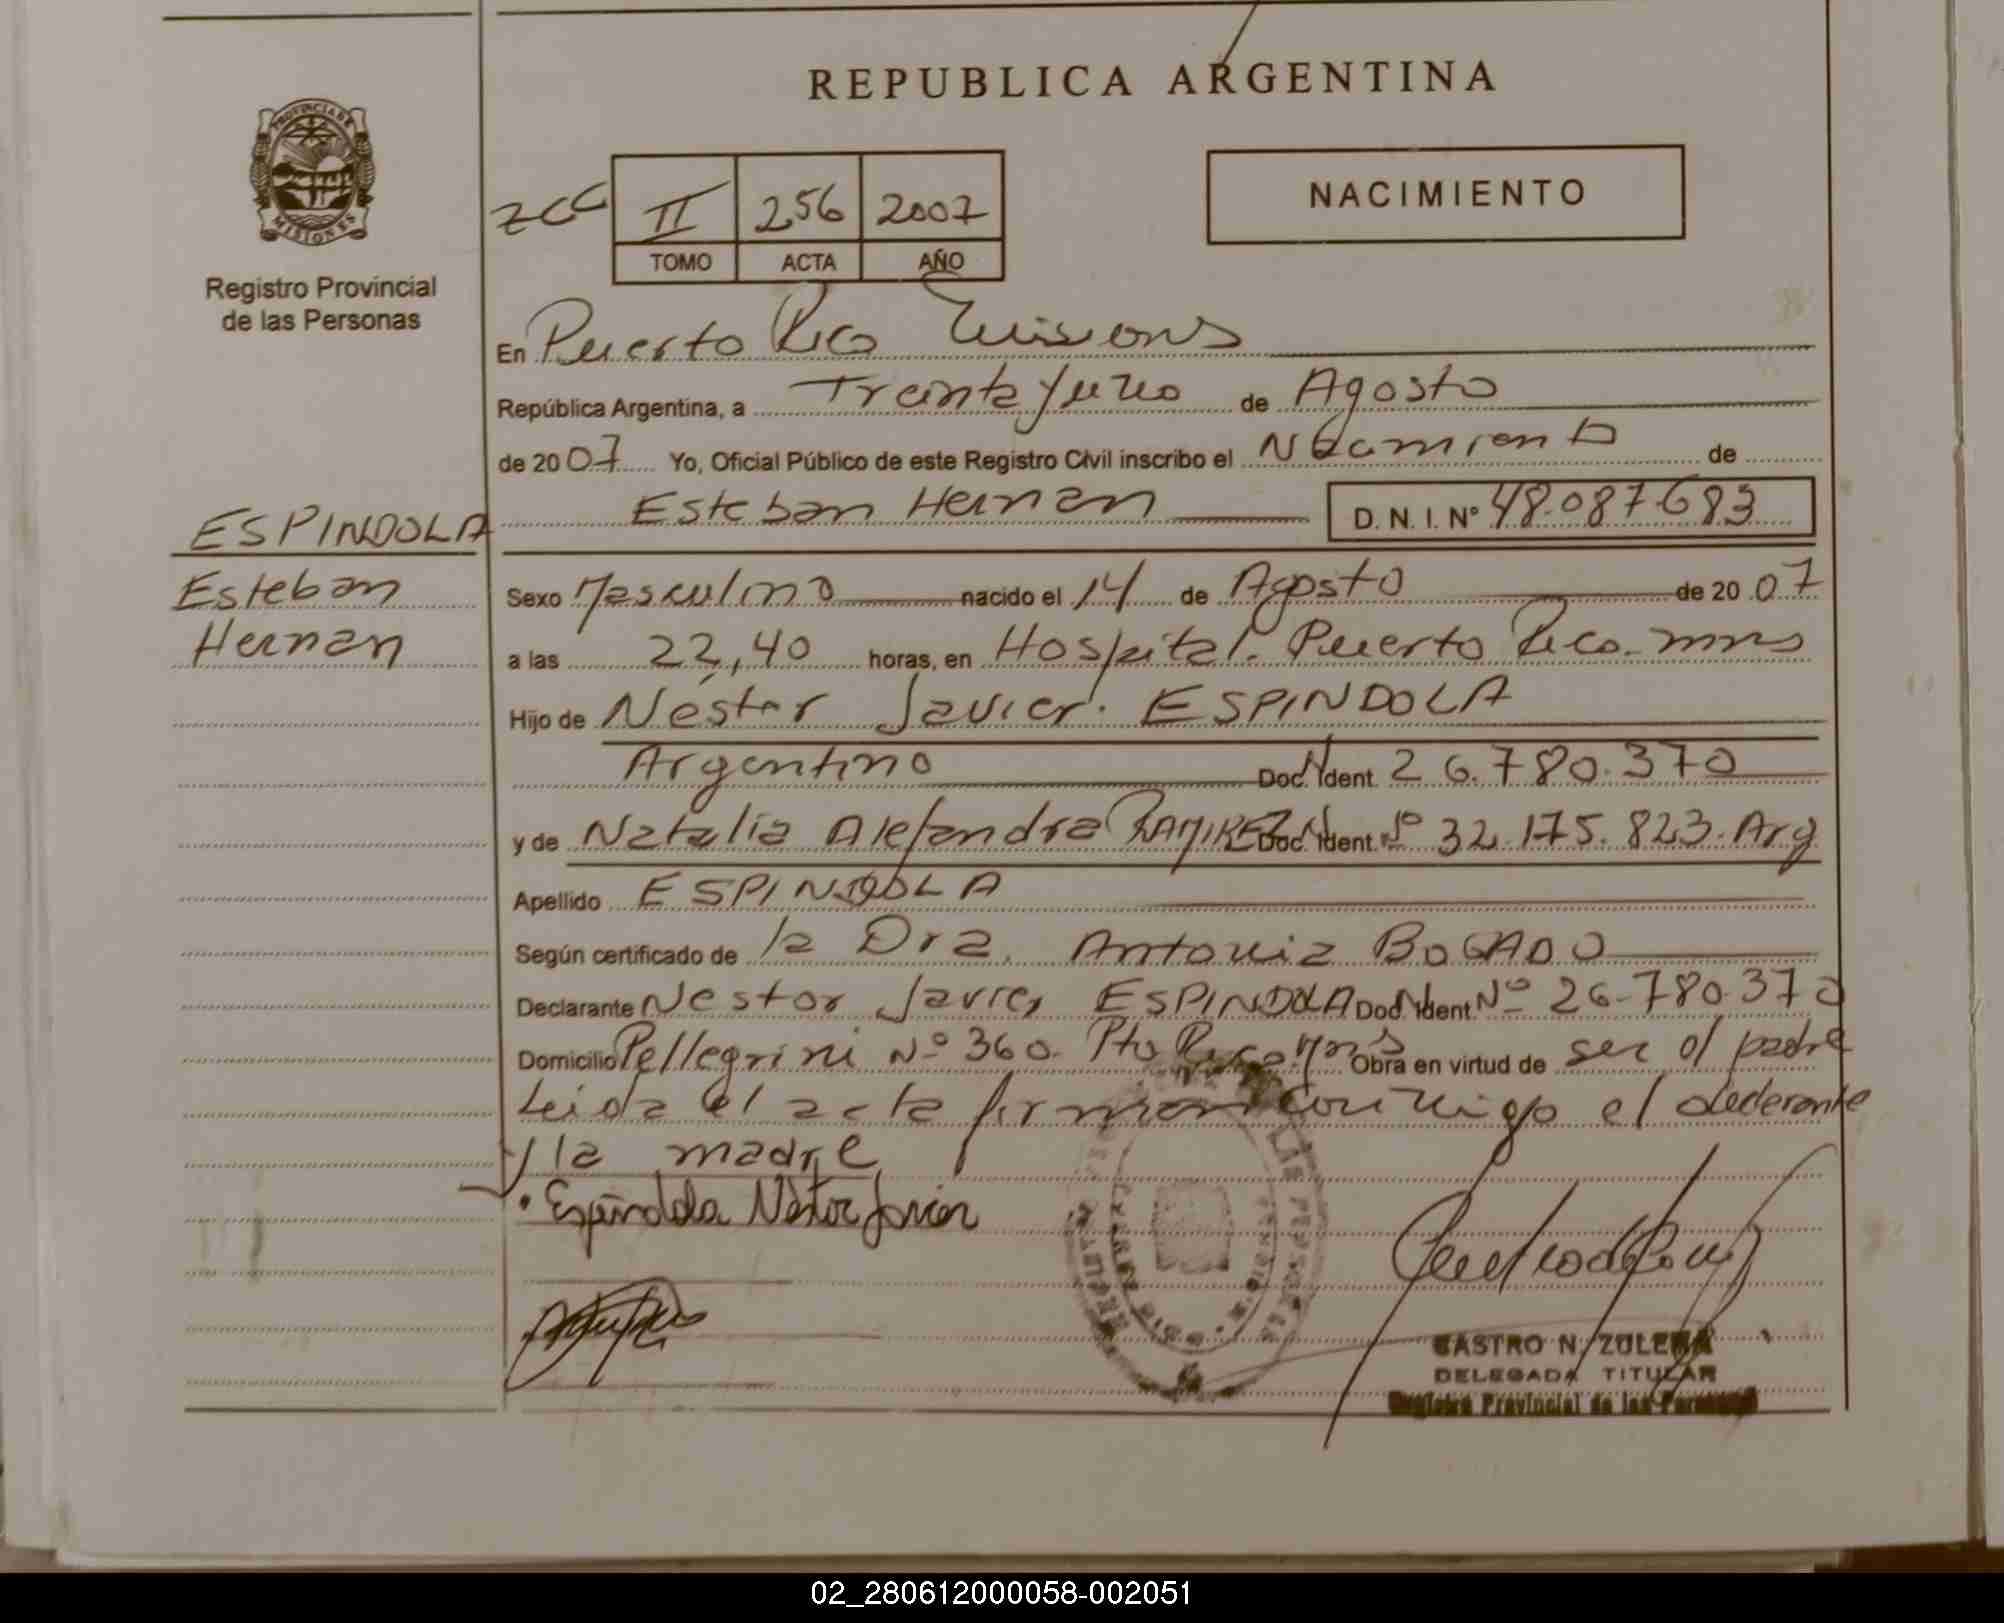 REPUBLICA ARGENTINA
PROVINCIA DE MISIONES
Registro Provincial
de las Personas
NACIMIENTO
II 256 2007
TOMO ACTA AÑO
En Puerto Rico Misiones
República Argentina, a Treinta y uno de Agosto
de 2007 Yo, Oficial Público de este Registro Civil inscribo el Nacimiento de
Esteban Hernan D. N. I. Nº 48.087.683
ESPINDOLA
Esteban
Hernan
Sexo Masculino nacido el 14 de Agosto de 2007
a las 22,40 horas, en Hospital. Puerto Rico. mns
Hijo de Néstor Javier. ESPINDOLA
Argentino Doc. Ident. Nº 26.780.370
y de Natalia Alejandra RAMIREZ Doc. Ident. Nº 32.175.823. Arg
Apellido ESPINDOLA
Según certificado de la Dra. Antonia BOGADO
Declarante Nestor Javier ESPINDOLA Doc. Ident. Nº 26.780.370
Domicilio Pellegrini Nº 360. Pto Rico. Mns Obra en virtud de ser el padre
Leida el acta firman conmigo el declarante
y la madre
Espíndola Néstor Javier
CASTRO N. ZULEMA
DELEGADA TITULAR
Registro Provincial de las Personas
02_280612000058-002051